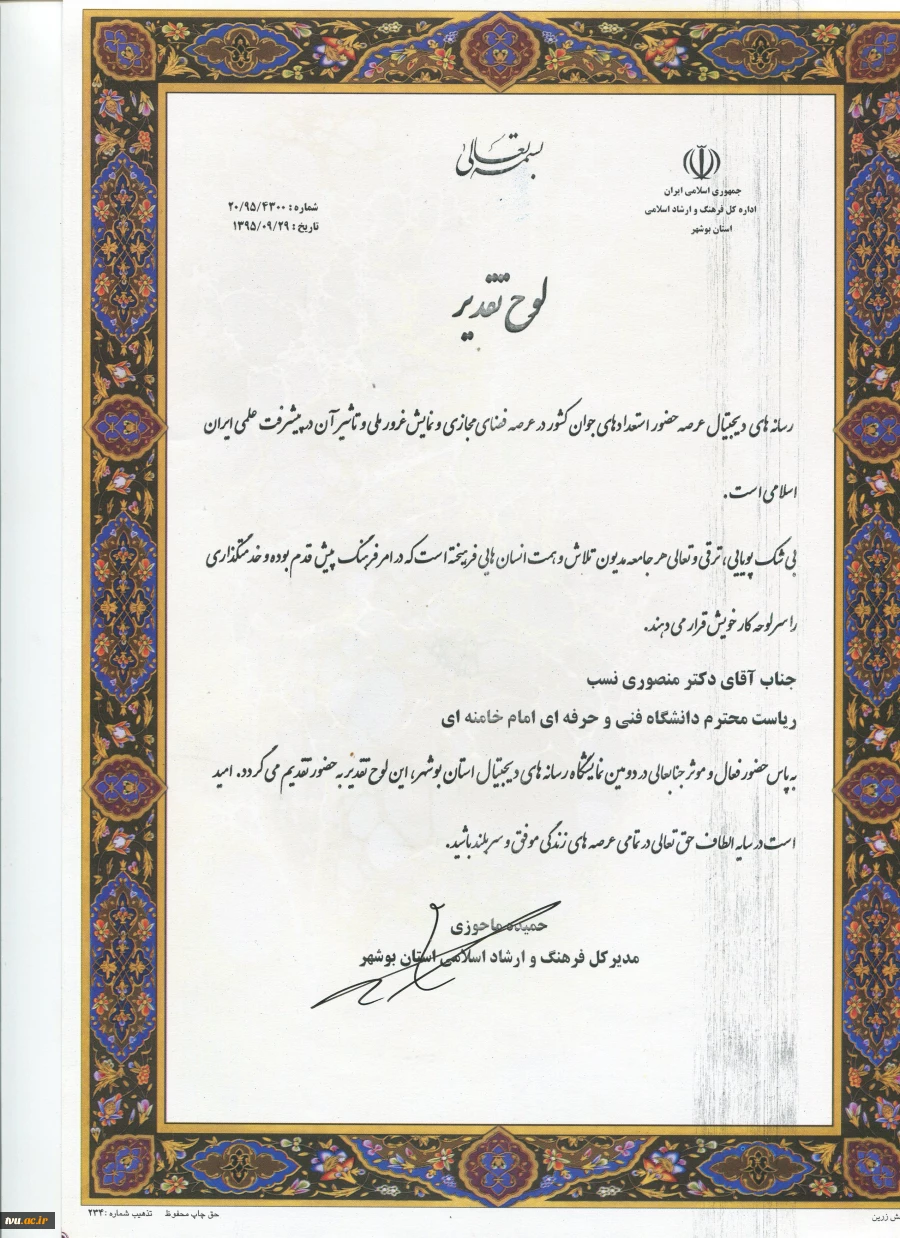 بسمه تعالی
جمهوری اسلامی ایران
اداره کل فرهنگ و ارشاد اسلامی
استان بوشهر
شماره : ۲۰/۹۵/۴۳۰۰
تاریخ : ۱۳۹۵/۰۹/۲۹
لوح تقدیر
رسانه های دیجیتال عرصه حضور استعدادهای جوان کشور در عرصه فضای مجازی و نمایش غرور ملی و تاثیر آن در پیشرفت علمی ایران
اسلامی است.
بی شک پویایی، ترقی و تعالی هر جامعه مدیون تلاش و همت انسان هایی فریخته است که در امر فرهنگ پیش قدم بوده و خدمتگذاری
را سرلوحه کار خویش قرار می دهند.
جناب آقای دکتر منصوری نسب
ریاست محترم دانشگاه فنی و حرفه ای امام خامنه ای
به پاس حضور فعال و موثر جنابعالی در دومین نمایشگاه رسانه های دیجیتال استان بوشهر، این لوح تقدیر به حضور تقدیم می گردد. امید
است در سایه الطاف حق تعالی در تمامی عرصه های زندگی موفق و سربلند باشید.
حمیده ماحوزی
مدیر کل فرهنگ و ارشاد اسلامی استان بوشهر
حق چاپ محفوظ تذهیب شماره : ۲۳۴
زرین
tvu.ac.ir